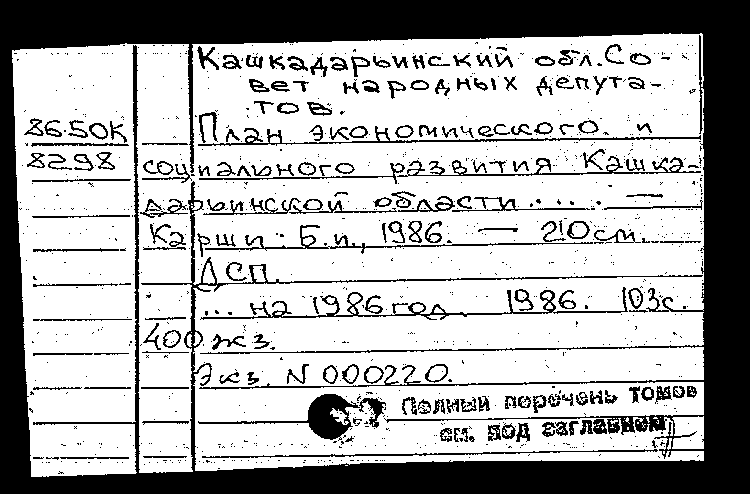 Кашкадарьинский обл.Со-
вет народных депута-
тов.
86-50К План экономического и
8298 социального развития Кашка-
дарьинской области.... —
Карши: Б.и., 1986. — 210см.
ДСП.
...на 1986 год. 1986. 103с.
400 экз.
Экз. N 000220.
Полный перечень томов
см. под заглавием